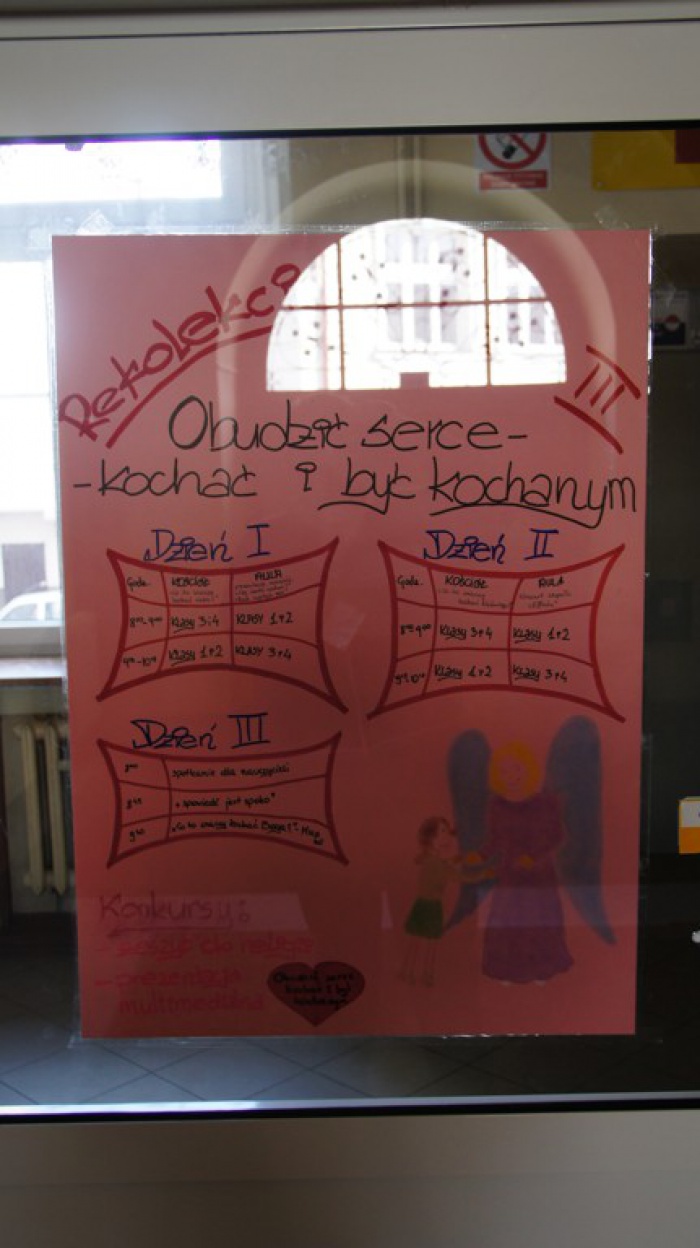 Rekolekcj
III
Obudzić serce-
-kochać i być kochanym
Dzień I
Godz. KOŚCIÓŁ AULA
8⁰⁰-9⁰⁰ KLASY 3i4 KLASY 1+2
KLASY 1+2 KLASY 3+4
Dzień II
Godz. KOŚCIÓŁ AULA
KLASY 3+4 KLASY 1+2
KLASY 1+2 KLASY 3+4
Dzień III
spotkanie dla nauczycieli
"spowiedź jest spoko"
"Co to znaczy kochać Boga?"-
Konkursy:
- zeszyt do religii
- prezentacja
multimedialna
Obudzić serce
kochać i być
kochanym